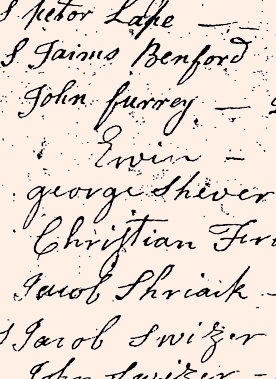 S Petor Lape —
S Jaims Benford
John furrey —
Erwin —
george Shever
Christian
Jacob Shriaik
S Jacob Swizer
John Swizer —